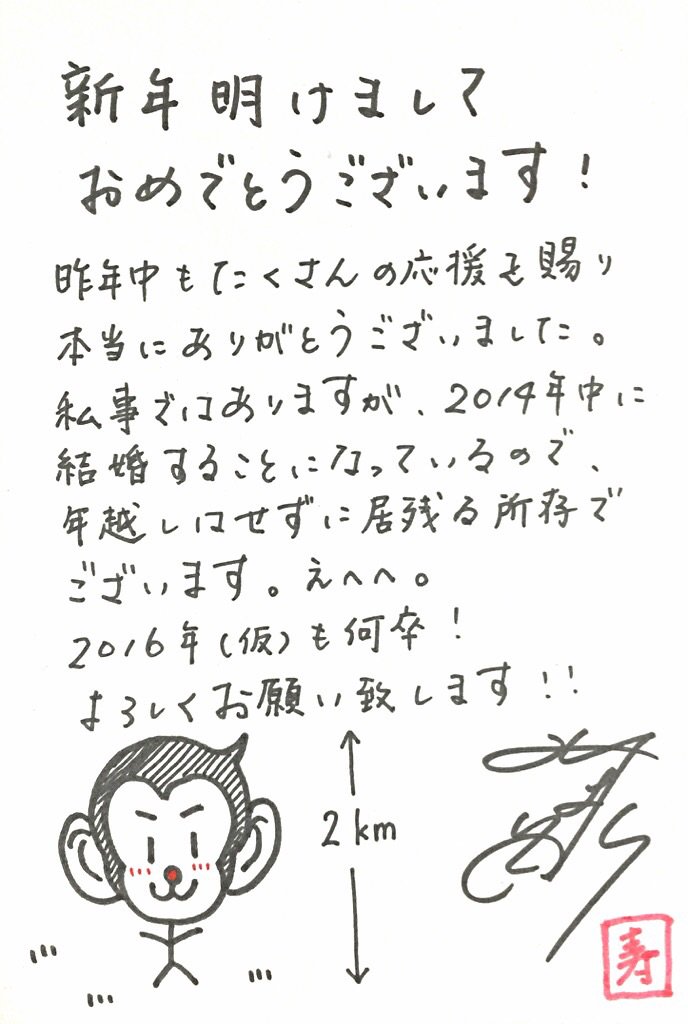 新年明けまして
おめでとうございます!
昨年中もたくさんの応援を賜り
本当にありがとうございました。
私事ではありますが、2014年中に
結婚することになっているので、
年越しはせずに居残る所存で
ございます。えへへ。
2016年(仮)も何卒!
よろしくお願い致します!!
2km
寿